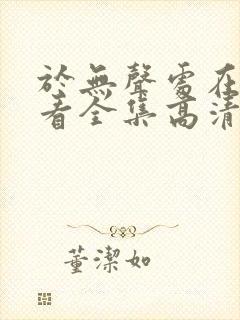 於無聲處在
看全集高清
董潔如